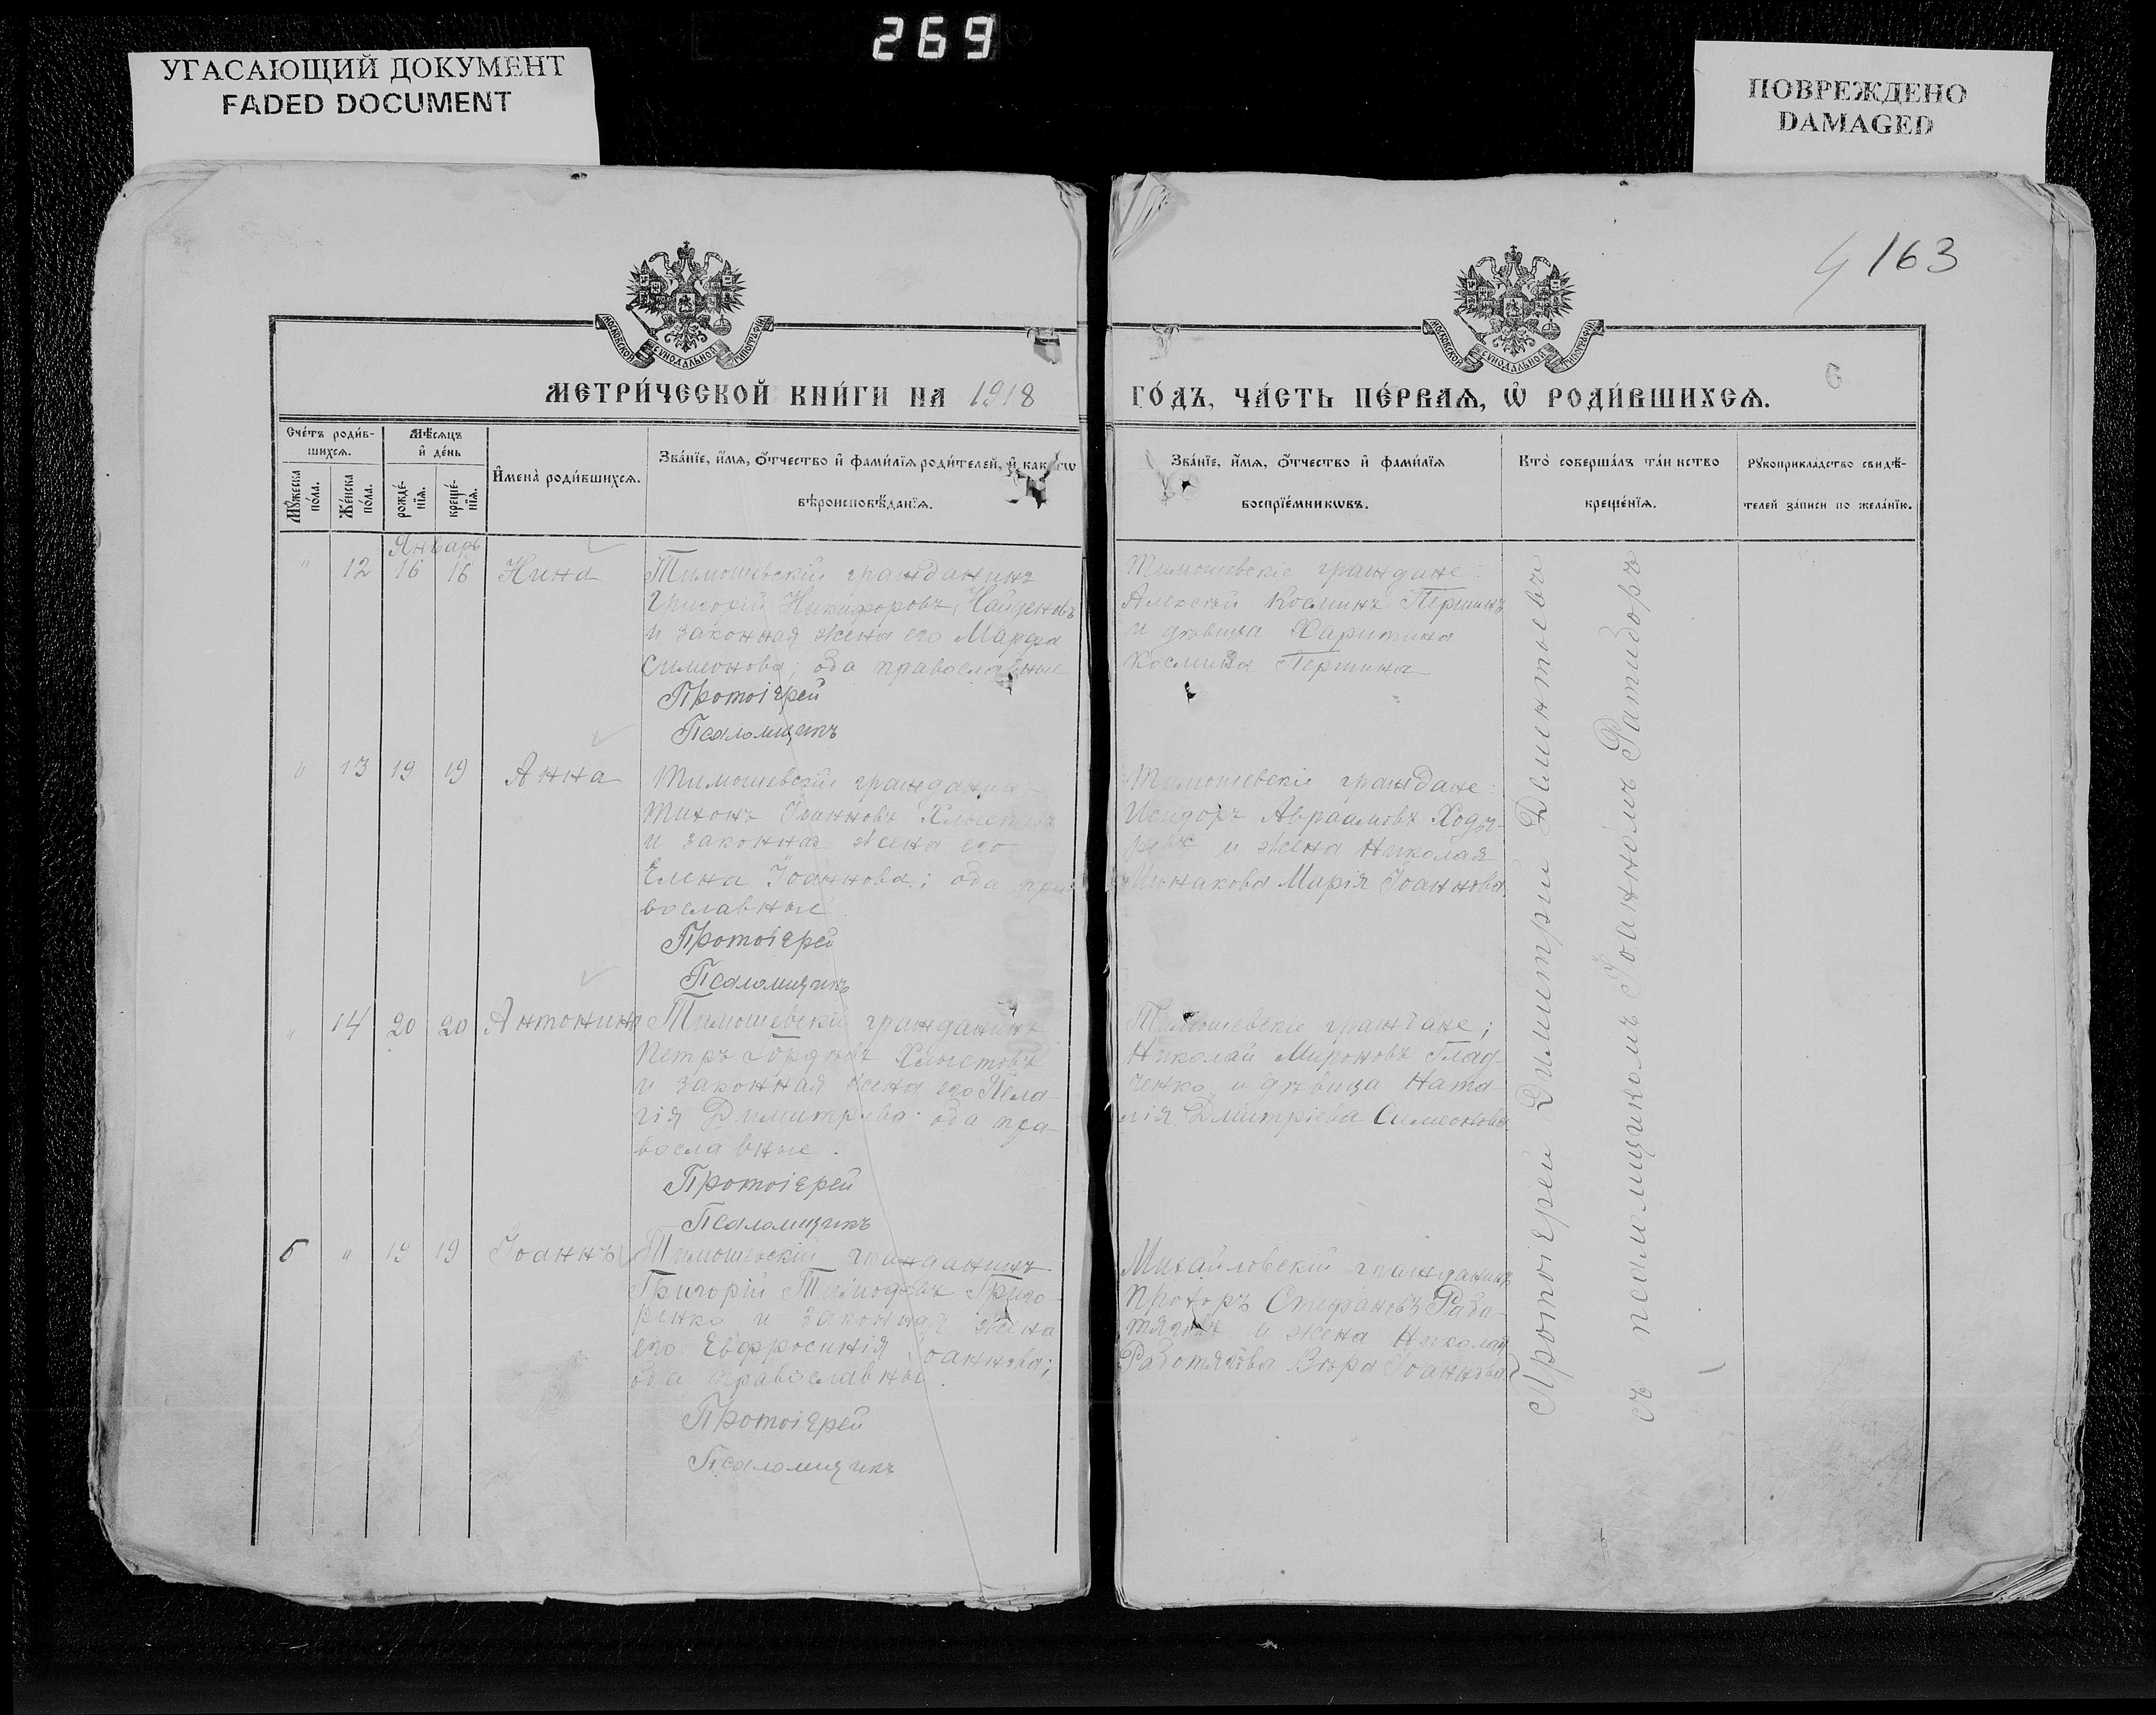 269
УГАСАЮЩИЙ ДОКУМЕНТ
FADED DOCUMENT
ПОВРЕЖДЕНО
DAMAGED
4 163
МОСКОВСКОЙ СѴНОДАЛЬНОЙ ТИПОГРАФІИ
МОСКОВСКОЙ СѴНОДАЛЬНОЙ ТИПОГРАФІИ
МЕТРИ́ЧЕСКОЙ КНИ́ГИ НА 1918
ГО́ДЪ, ЧА́СТЬ ПЕ́РВАЯ, Ѡ҆ РОДИ́ВШИХСЯ.
Сче́тъ роди́в-
шихсѧ.
Мѣ́сѧцъ
и҆ де́нь
Мꙋ́жеска
по́ла.
Же́нска
по́ла.
рожде́-
нїѧ.
креще́-
нїѧ.
И҆мена̀ роди́вшихсѧ.
Зва́нїе, и҆́мѧ, ѻ҆́тчество и҆ фами́лїѧ роди́телей, и҆
вѣроисповѣ́данїѧ.
Зва́нїе, и҆́мѧ, ѻ҆́тчество и҆ фами́лїѧ
воспрїе́мникѡвъ.
Кто̀ соверша́лъ та́инство
креще́нїѧ.
Рꙋкоприкла́дство свидѣ́-
телей за́писи по жела́нїю.
Январь
" 12 16 16 Нина
Тимошевскій гражданинъ
Григорій Никифоровъ Найденовъ
и законная жена его Марфа
Симеонова; оба православные
Протоіерей
Псаломщикъ
Тимошевскіе граждане:
Алексѣй Косминъ Першинъ
и дѣвица Харитина
Космина Першина
" 13 19 19 Анна
Тимошевскій гражданинъ
Тихонъ Іоанновъ
и законная жена его
Елена Іоаннова; оба пра
вославные
Протоіерей
Псаломщикъ
Тимошевскіе граждане:
Исидоръ Авраамовъ
и жена Николая
Минакова Марія Іоаннова.
" 14 20 20 Антонина
Тимошевскій гражданинъ
Петръ Хлыстовъ
и законная жена его Пела-
гія Димитріева; оба пра-
вославные.
Протоіерей
Псаломщикъ
Тимошевскіе граждане;
Николай Мироновъ Глад-
ченко и дѣвица Ната-
лія Дмитріева Симеонова
6 " 19 19 Іоаннъ
Тимошевскій гражданинъ
Григорій Тимофѣевъ Григо-
ренко и законная жена
его Евфросинія Іоаннова;
оба православные.
Протоіерей
Псаломщикъ
Михайловскій гражданинъ
Прохоръ Стефановъ Рабо-
тяговъ и жена Николая
Работягова Вѣра Іоаннова
Протоіерей Димитрій
съ псаломщикомъ Іоанномъ